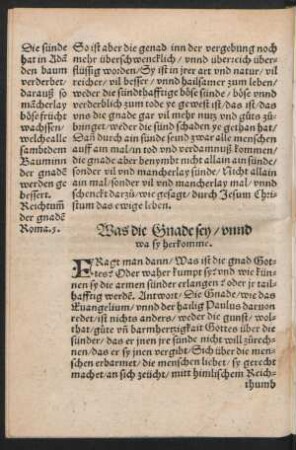 Die sünde
hat in Adā
den baum
verderbet/
darauß so
mācherlay
böse frücht
wachssen/
welche alle
sambt dem
Baum inn
der gnadē
werden ge
bessert.
Reichtum̄
der gnadē
Roma. 5.
So ist aber die genad inn der vergebung noch
mehr überschwencklich/ vnnd überreich über-
flüssig worden/ Sy ist in jrer art vnd natur/ vil
reicher/ vil besser/ vnnd hailsamer zum leben/
weder die sündthafftige böse sünde/ böse vnnd
verderblich zum tode ye gewest ist/ das ist/ das
vns die gnade gar vil mehr nutz vnd güts zů-
bringet/ weder die sünd schaden ye gethan hat/
Dañ durch ain sünde seind zwar alle menschen
auff ain mal/ in tod vnd verdamnuß kommen/
die gnade aber benymbt nicht allain ain sünde/
sonder vil vnd mancherlay sünde/ Nicht allain
ain mal/ sonder vil vnd mancherlay mal/ vnnd
schenckt darzů/ wie gesagt/ durch Jesum Chri-
stum das ewige leben.
Was die Gnade sey/ vnnd
wa sy herkomme.
FRagt man dann/ Was ist die gnad Got-
tes? Oder waher kumpt sy? vnd wie kün-
nen sy die armen sünder erlangen? oder je tail-
hafftig werdē. Antwort/ Die Gnade/ wie das
Euangelium/ vnnd der hailig Paulus daruon
redet/ ist nichts anders/ weder die gunst/ wol-
that/ güte vñ barmhertzigkait Gottes über die
sünder/ das er jnen jre sünde nicht will zürech-
nen/ das er sy jnen vergibt/ Sich über die men-
schen erbarmet/ die menschen liebet/ sy gerecht
machet/ an sich zeücht/ mitt himlischem Reich-
thumb